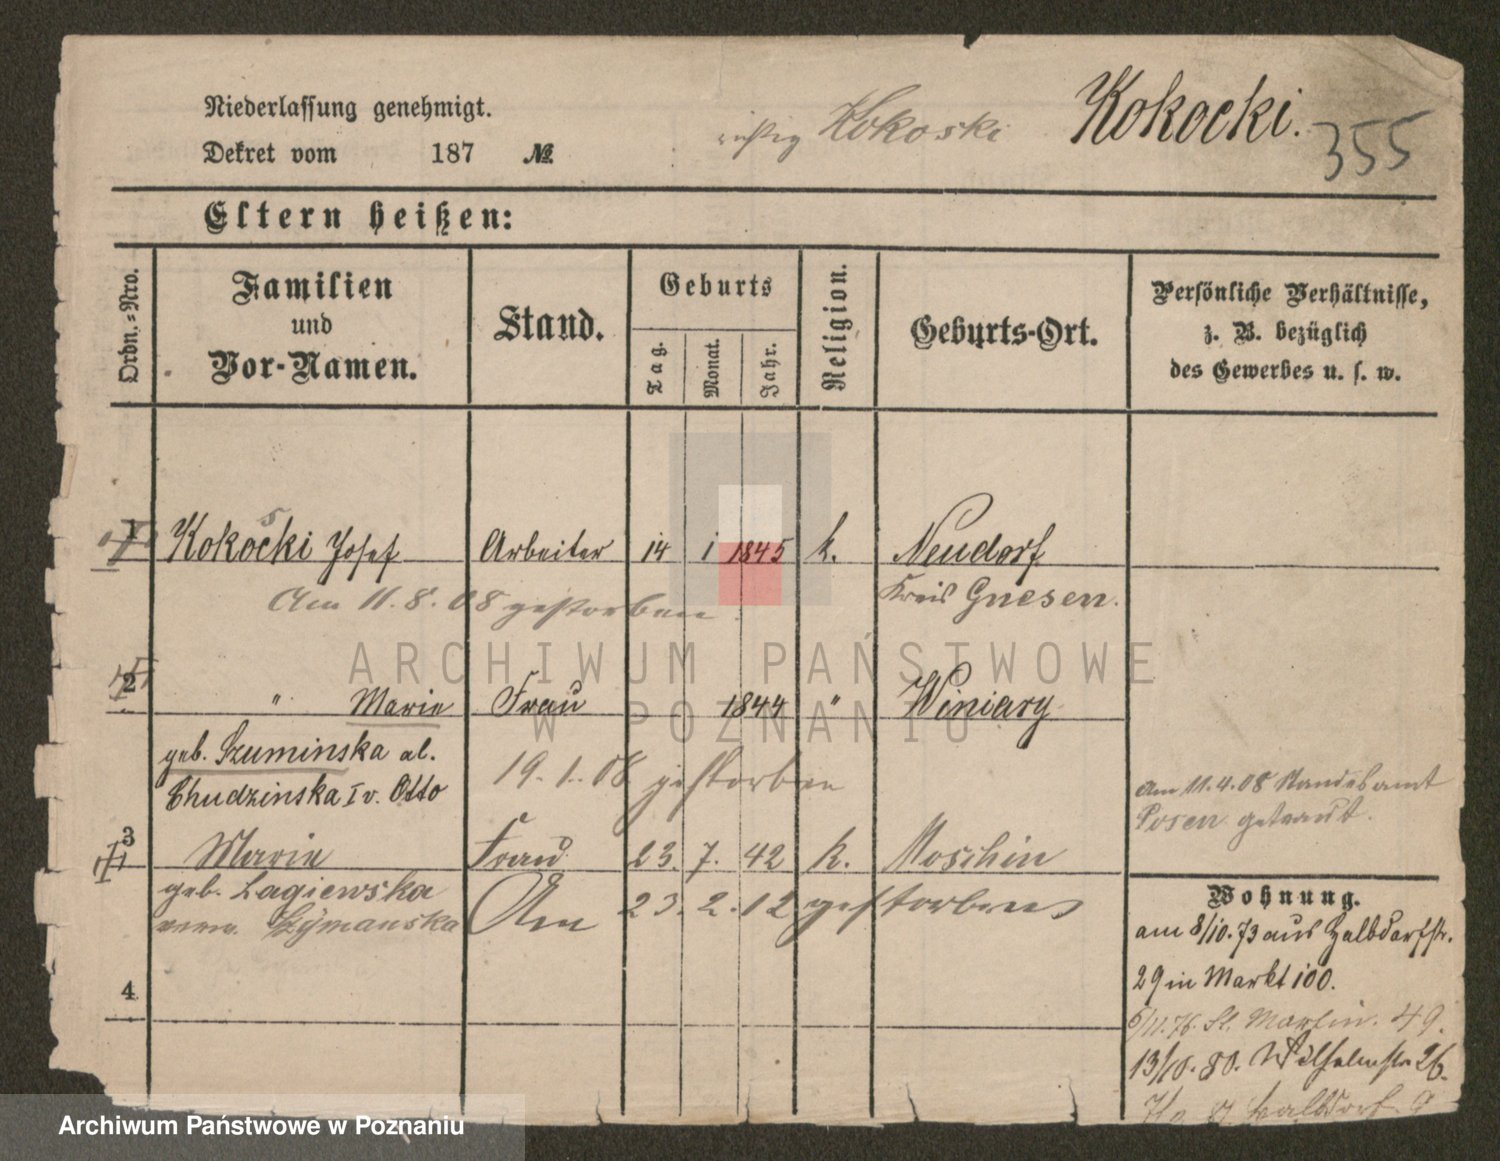 Niederlassung genehmigt.
Dekret vom 187 №
richtig Kokoski Kokocki. 355
Eltern heißen:
Ordn.-Nro.
Familien
und
Vor-Namen.
Stand.
Geburts
Tag.
Monat.
Jahr.
Religion.
Geburts-Ort.
Persönliche Verhältnisse,
z. B. bezüglich
des Gewerbes u. s. w.
1 Kokocki Josef Arbeiter 14 1 1845 k. Neudorf
s
Am 11.8.08 gestorben. Kreis Gnesen.
2 " Marie Frau 1844 " Winiary
geb. Szuminska al.
Chudzinska I v. Otto
19.1.08 gestorben
Am 11.4.08 Standesamt
Posen getraut.
3 Marie Frau 23. 7. 42 k. Moschin
geb. Lagiewska
verw. Szymanska Am 23.2.12 gestorben
4
Wohnung.
am 8/10.73 aus Halbdorfstr.
29 in Markt 100.
6/11.76. St. Martin. 49.
13/10.80. Wilhelmstr 26.
Halbdorf 9
ARCHIWUM PAŃSTWOWE
W POZNANIU
Archiwum Państwowe w Poznaniu